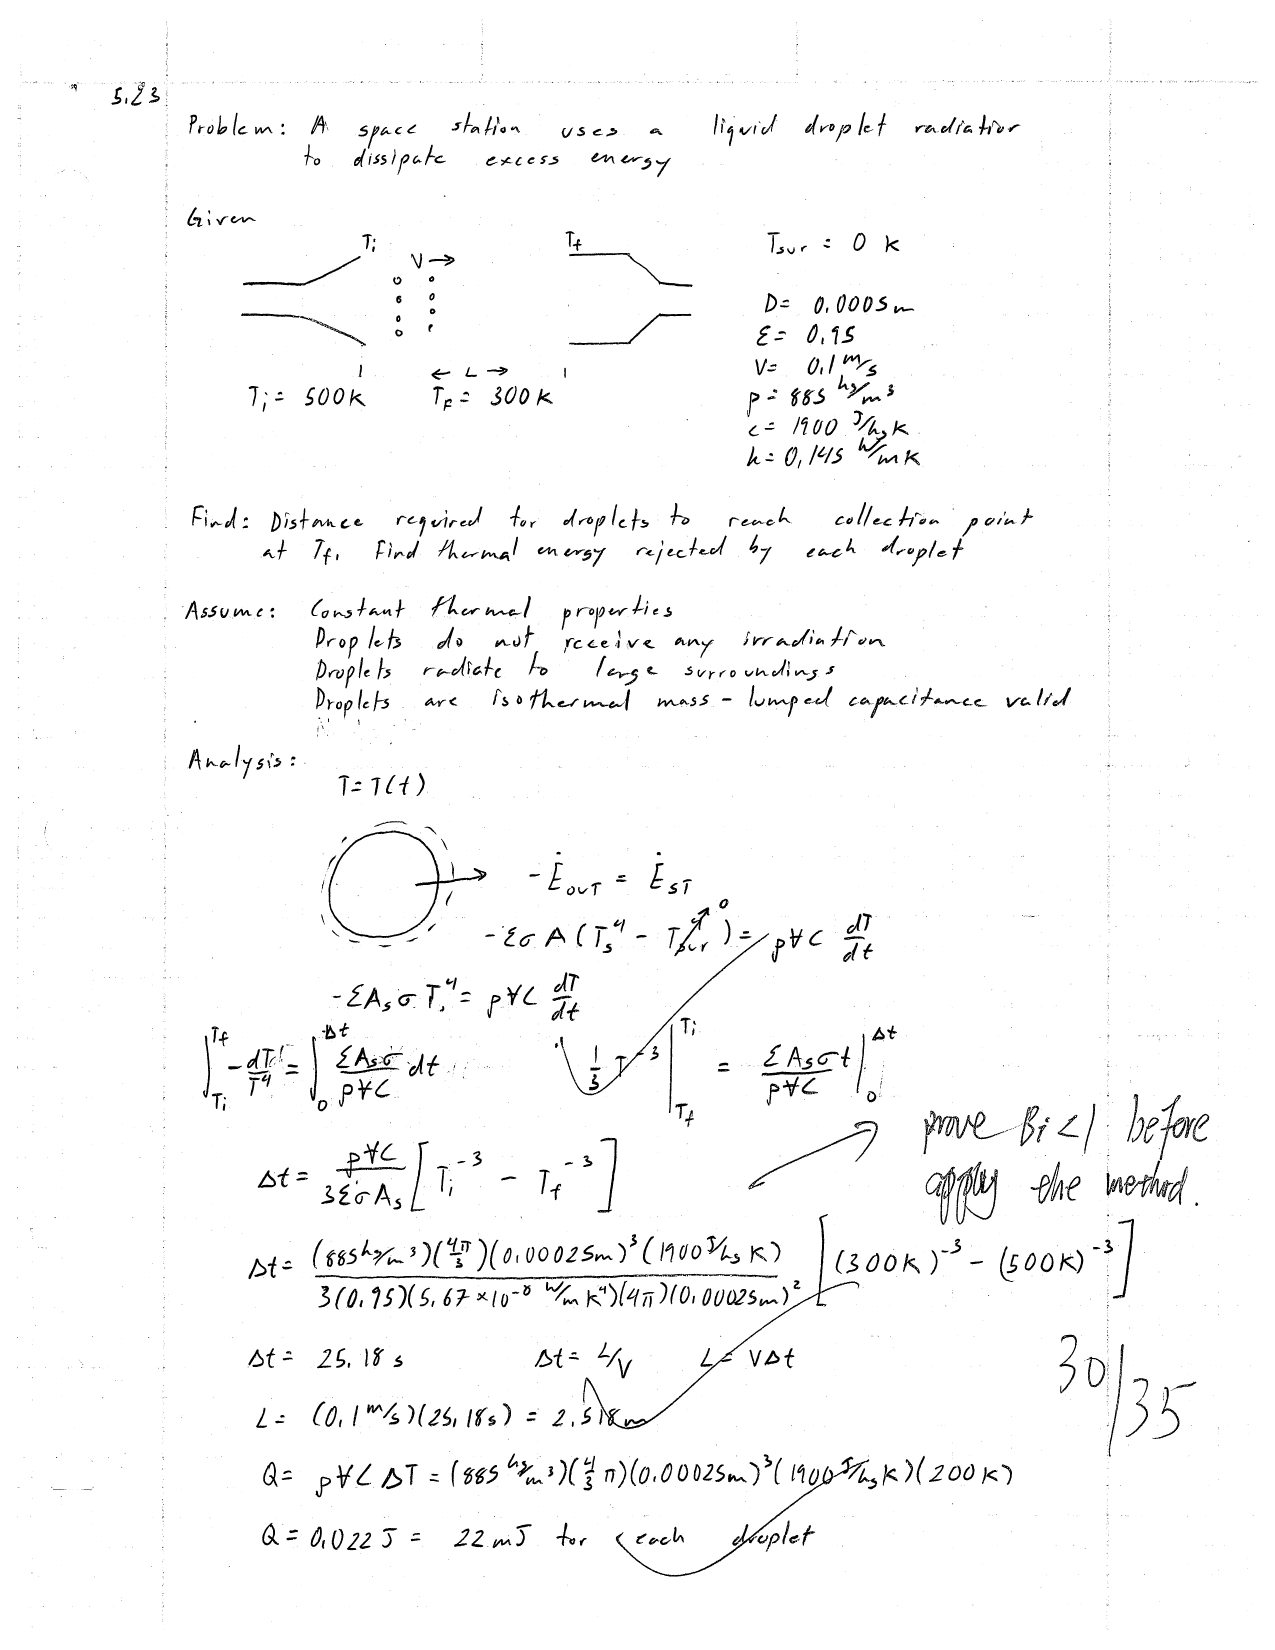 5.23
Problem: A space station uses a liquid droplet radiatior
to dissipate excess energy
Given
Ti Tf Tsur = 0 K
V→
D= 0.0005m
ε= 0.95
V= 0.1 m/s
← L →
Ti= 500K Tf= 300K ρ= 885 kg/m³
c= 1900 J/kgK
k= 0.145 W/mK
Find: Distance required for droplets to reach collection point
at Tf. Find thermal energy rejected by each droplet
Assume: Constant thermal properties
Droplets do not receive any irradiation
Droplets radiate to large surroundings
Droplets are isothermal mass - lumped capacitance valid
Analysis:
T=T(t)
-Ėout = Ėst
-εσA(Ts⁴ - Tsur⁴) = ρVC dT/dt
0
-εAsσTs⁴ = ρVC dT/dt
∫Ti^Tf -dT/T⁴ = ∫0^Δt εAsσ/ρVC dt 1/3 T⁻³ |Tf^Ti = εAsσt/ρVC |0^Δt
prove Bi<1 before
apply the method.
Δt = ρVC/3εσAs [Ti⁻³ - Tf⁻³]
Δt = (885kg/m³)(4π/3)(0.00025m)³(1900J/kgK) / 3(0.95)(5.67×10⁻⁸ W/mK⁴)(4π)(0.00025m)² [(300K)⁻³ - (500K)⁻³]
Δt = 25.18 s Δt = L/V L = VΔt
30/35
L = (0.1m/s)(25.18s) = 2.518m
Q = ρVCΔT = (885kg/m³)(4/3 π)(0.00025m)³(1900J/kgK)(200K)
Q = 0.022J = 22mJ for each droplet